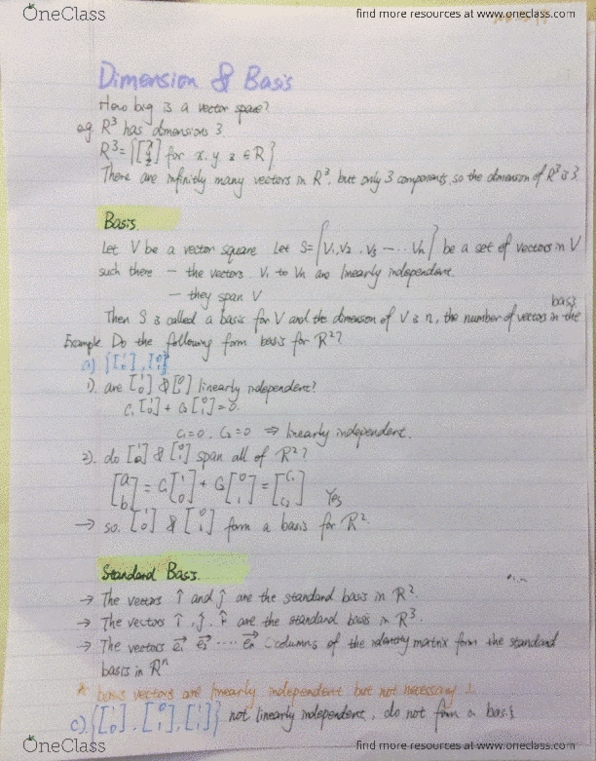 OneClass
find more resources at www.oneclass.com
Dimension & Basis
How big is a vector space?
eg. R³ has dimensions 3
R³ = {[x y z] for x, y, z ∈ R}
There are infinitly many vectors in R³, but only 3 components, so the dimension of R³ is 3
Basis.
Let V be a vector square. Let S = {V₁, V₂, V₃ --- Vn} be a set of vectors in V
such there - the vectors V₁ to Vn are linearly independent.
- they span V
basis
Then S is called a basis for V and the dimension of V is n, the number of vectors in the
Example. Do the following form basis for R²?
a) {[1 0], [0 1]}
1). are [1 0] & [0 1] linearly independent?
C₁[1 0] + C₂[0 1] = 0.
C₁=0, C₂=0 ⇒ linearly independent.
2). do [1 0] & [0 1] span all of R²?
[a b] = C₁[1 0] + C₂[0 1] = [C₁ C₂] Yes
→ so. [1 0] & [0 1] form a basis for R².
Standard Basis.
→ The vectors î and ĵ are the standard basis in R².
→ The vectors î, ĵ, k̂ are the standard basis in R³.
→ The vectors e₁ e₂ ···· en columns of the identity matrix form the standard
basis in Rⁿ
* basis vectors are linearly independent but not necessary ⊥
c). {[1 0], [0 1], [1 1]} not linearly independent, do not form a basis
OneClass
find more resources at www.oneclass.com